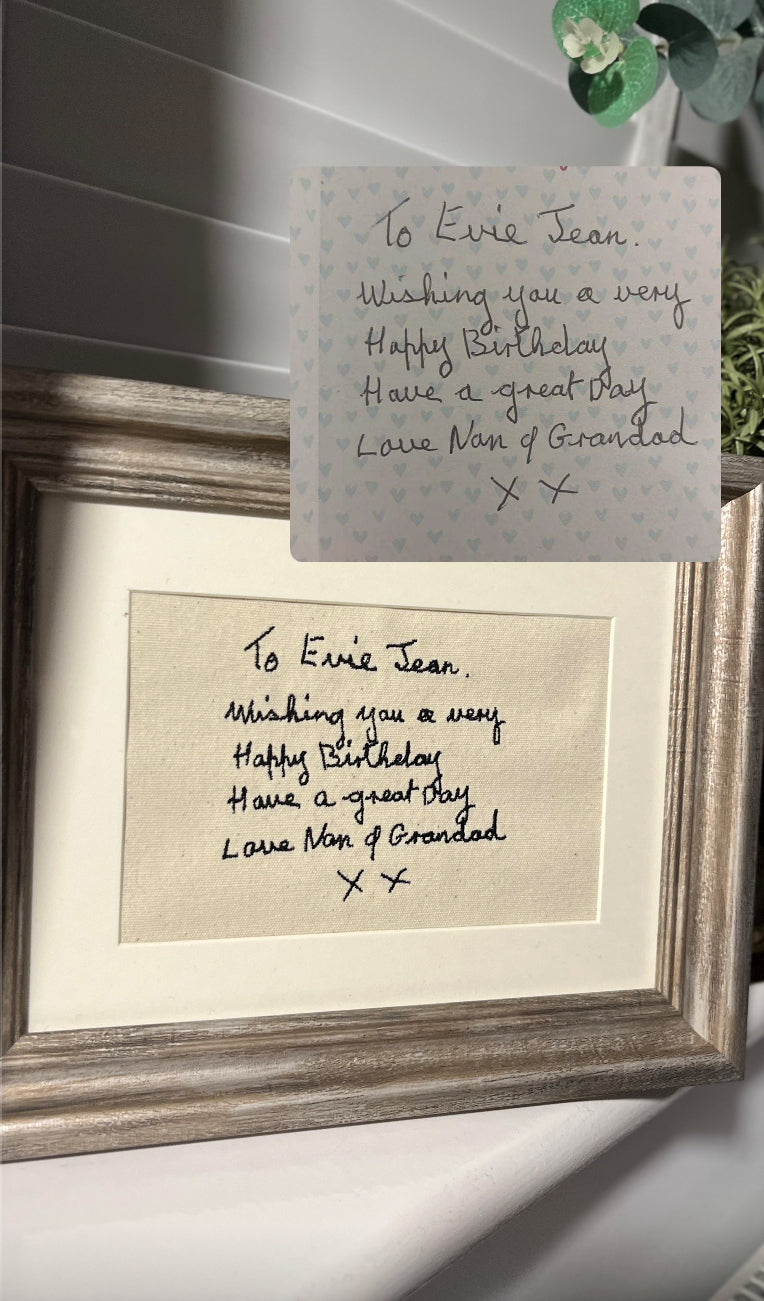 To Evie Jean.
Wishing you a very
Happy Birthday
Have a great Day
Love Nan & Grandad
X X
To Evie Jean.
Wishing you a very
Happy Birthday
Have a great Day
Love Nan & Grandad
X X